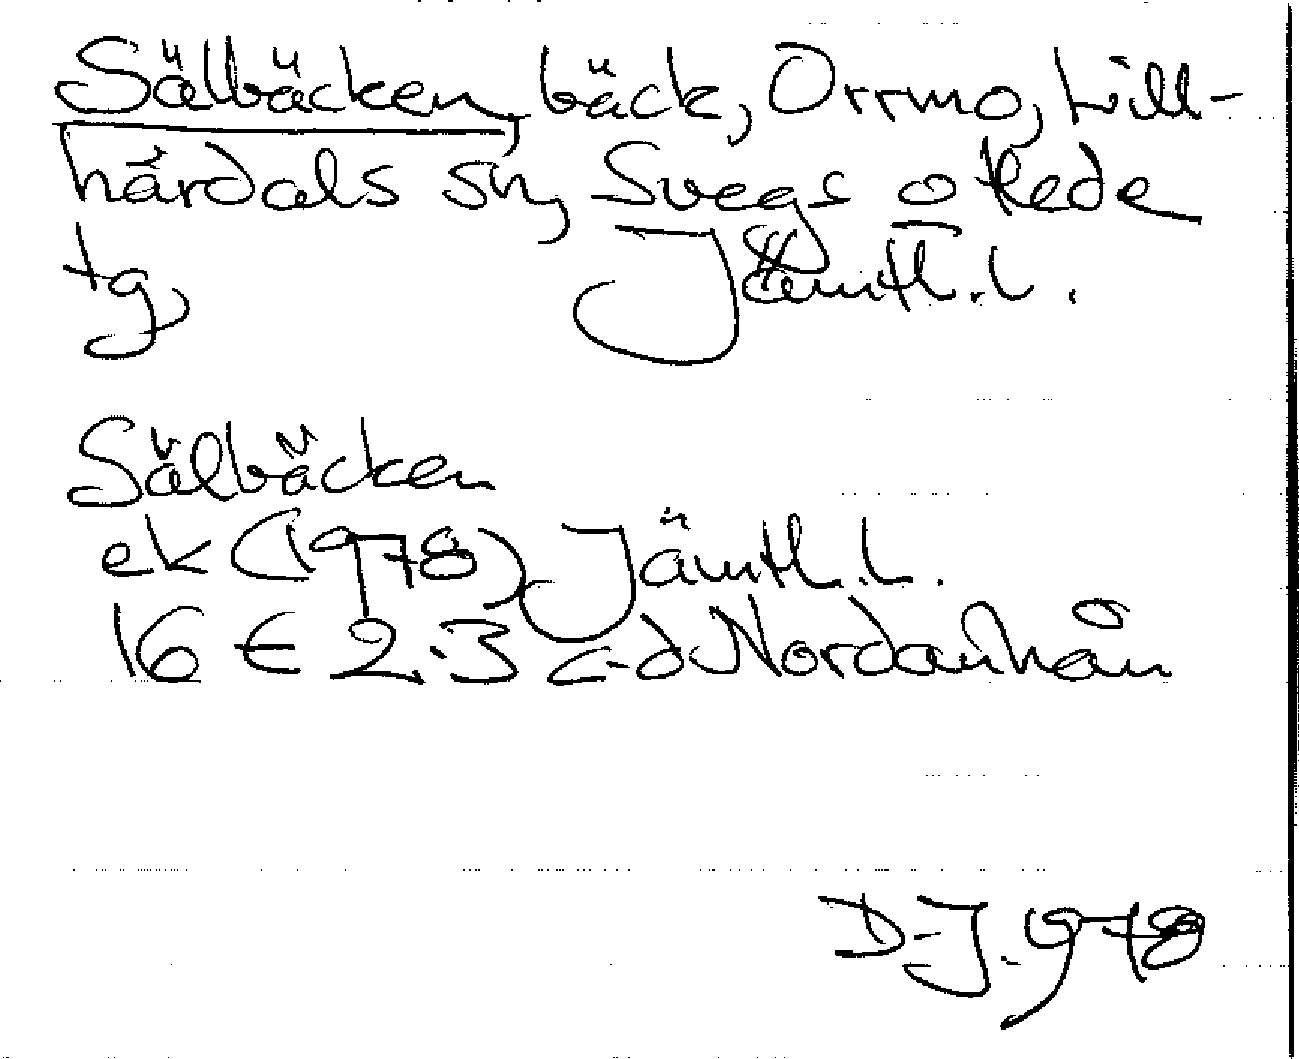 Sälbäcken, bäck, Orrmo, Lill-
härdals sn, Svegs o Hede
tg, Jämtl. L.
Sälbäcken
ek (1978) Jämtl. L.
16 E 2-3 c-d Nordanhån
D-J. 978